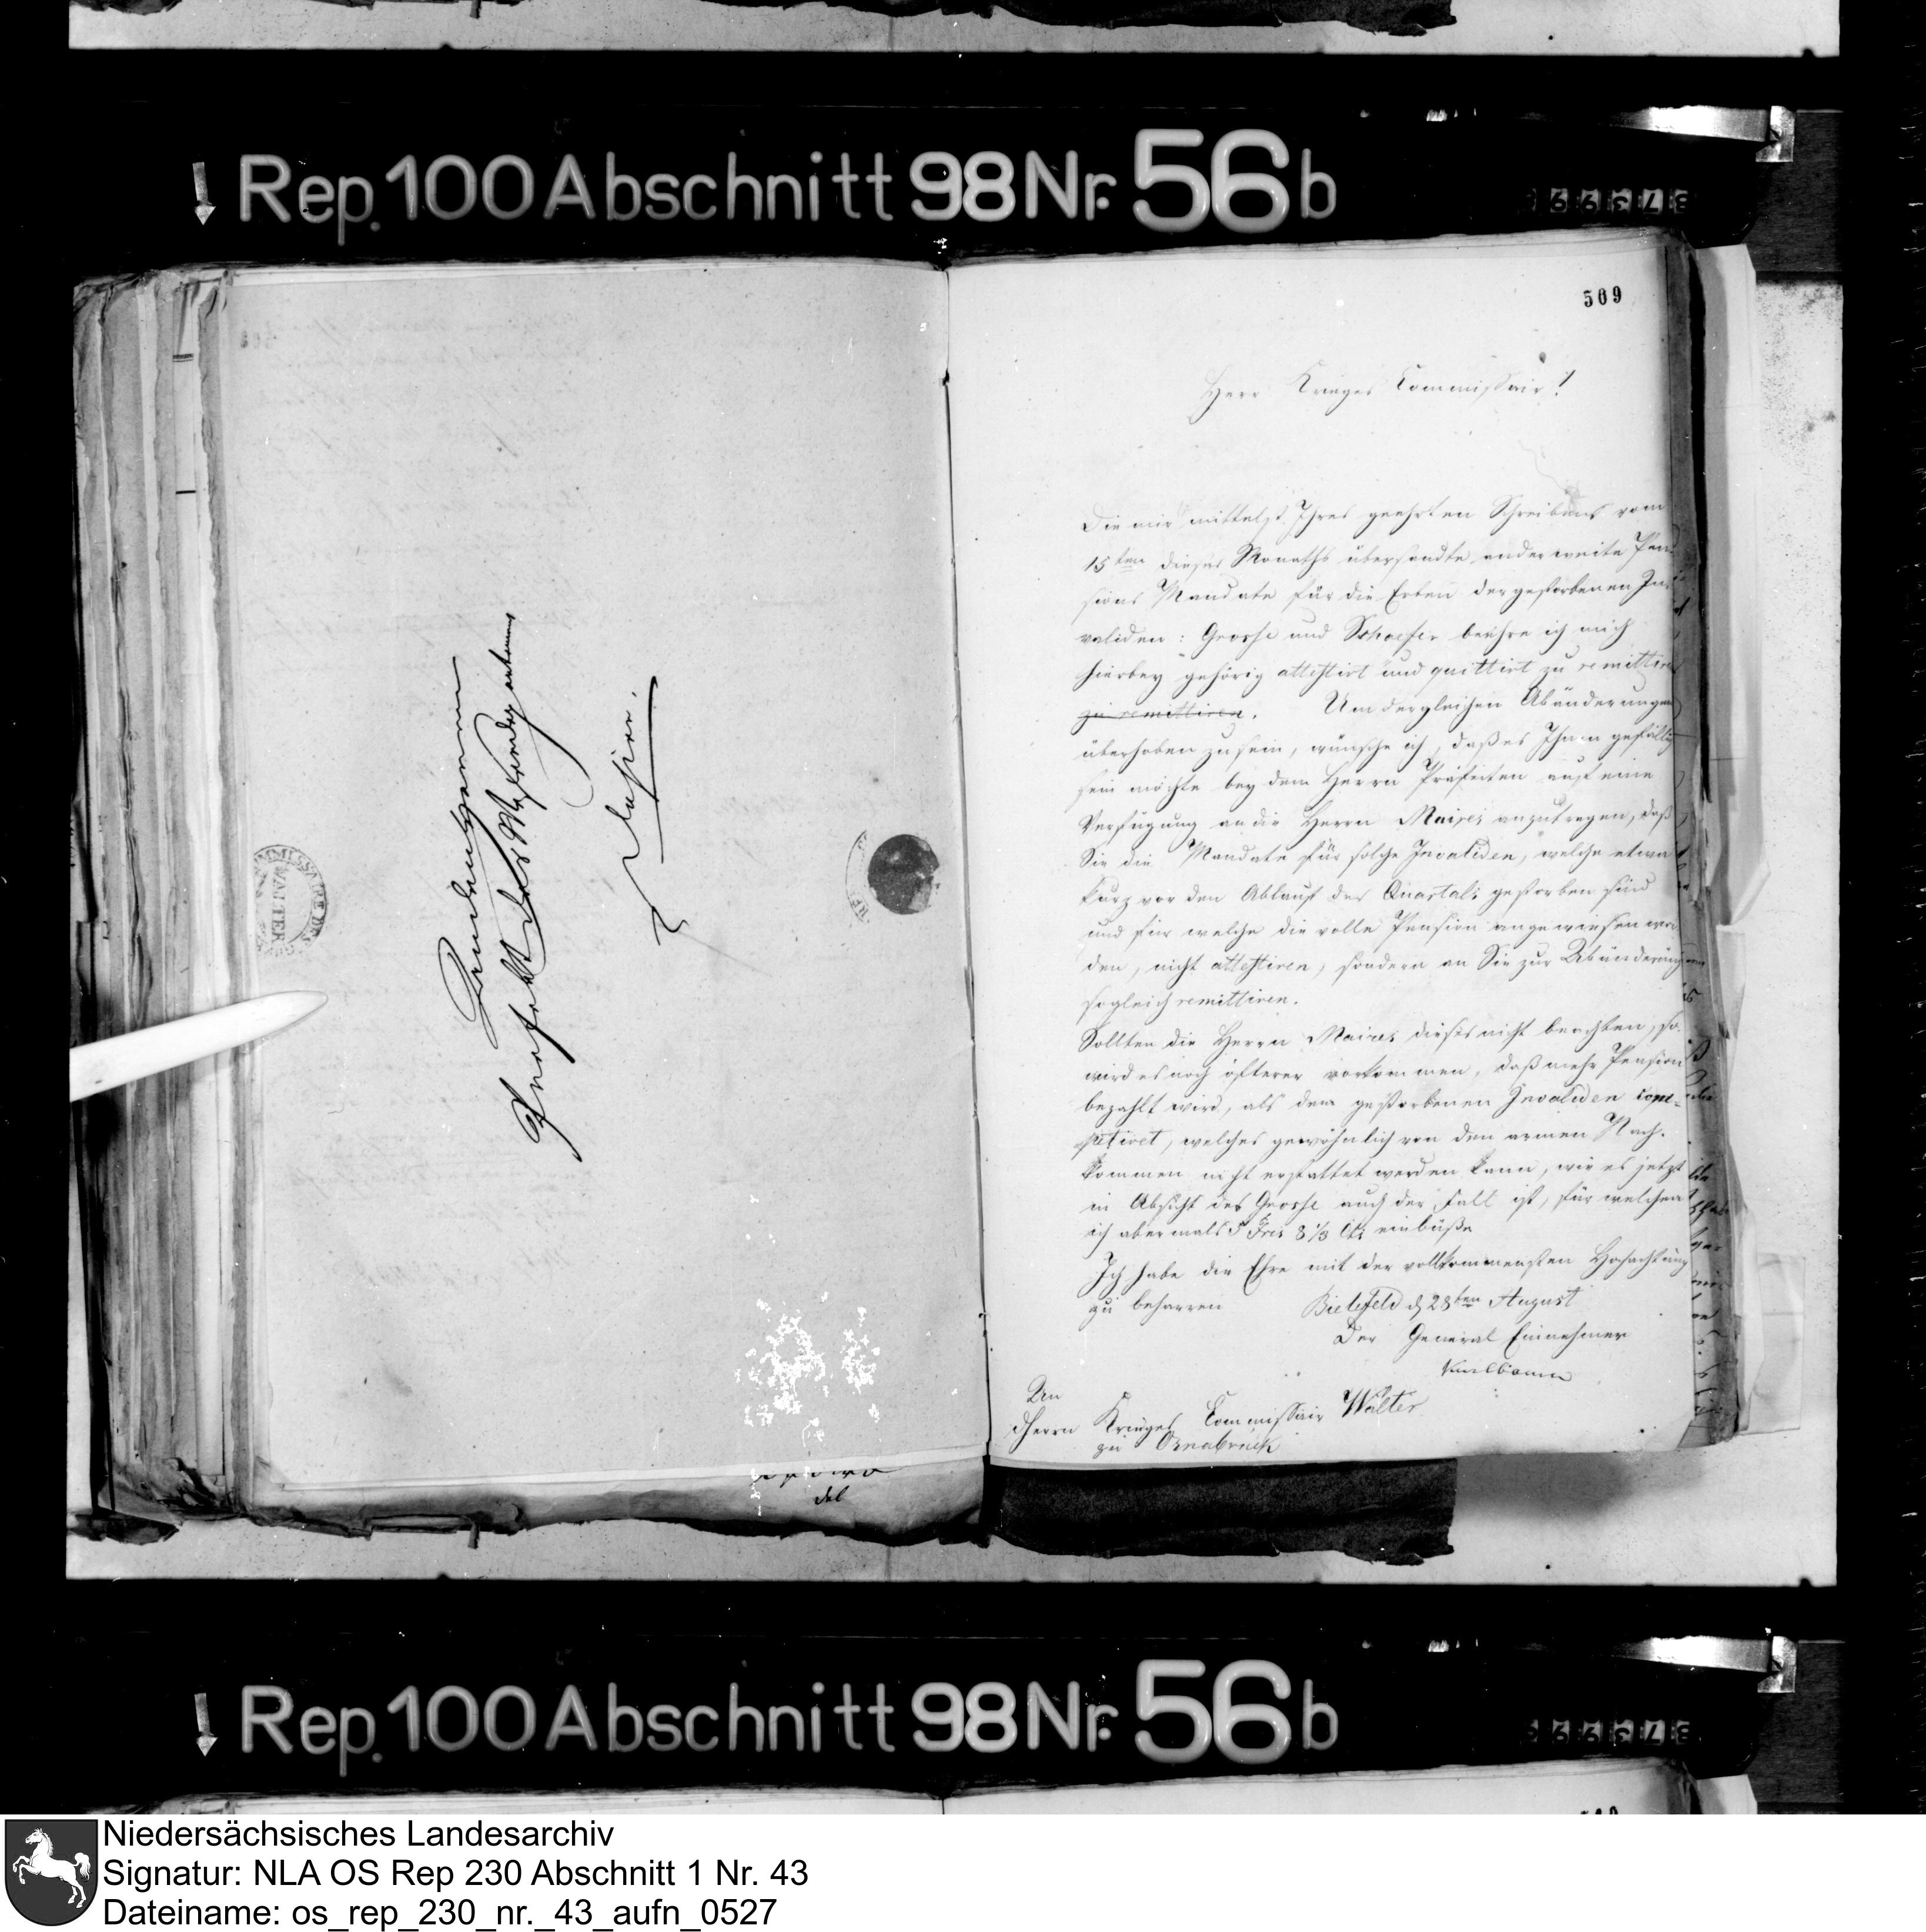 Rep. 100 Abschnitt 98 Nr. 56 b
Praefekt des Weser Departements
hier.
MMISSAIRE DES
WALTER
509
Herr Krieges Commissair!
Die mir mittelst Ihres geehrten Schreibens vom
15ten dieses Monaths übersandte anderweite Pen
sions Mandate für die Erben der gestorbenen In
validen: Grosse und Schaefer beehre ich mich
hierbey gehörig attestirt und quittirt zu remittiren
zu remittiren. Um dergleichen Abänderungen
überhoben zu sein, wünsche ich, daß es Ihnen gefällig
sein möchte bey dem Herrn Präfecten auf eine
Verfügung an die Herrn Maires anzutragen, daß
Sie die Mandate für solche Invaliden, welche etwa
kurz vor den Ablauf des Quartals gestorben sind
und für welche die volle Pension angewiesen wor
den, nicht attestiren, sondern an Sie zur Abänderung
sogleich remittiren.
Sollten die Herrn Maires dieses nicht beachten, so
wird es noch öfterer vorkommen, daß mehr Pension
bezahlt wird, als dem gestorbenen Invaliden com-
petiret, welches gewöhnlich von den armen Nach-
kommen nicht erstattet werden kann, wie es jetzt
in Absicht des Grosse auch der Fall ist, für welchen
ich abermals 5 Frcs 8 1/3 Cts einbüße
Ich habe die Ehre mit der vollkommensten Hochachtung
zu beharren Bielefeld d 28ten August
Der General Einnehmer
An
Herrn Krieges Commissair Walter
zu Osnabrück
del
Rep. 100 Abschnitt 98 Nr. 56 b
Niedersächsisches Landesarchiv
Signatur: NLA OS Rep 230 Abschnitt 1 Nr. 43
Dateiname: os_rep_230_nr._43_aufn_0527